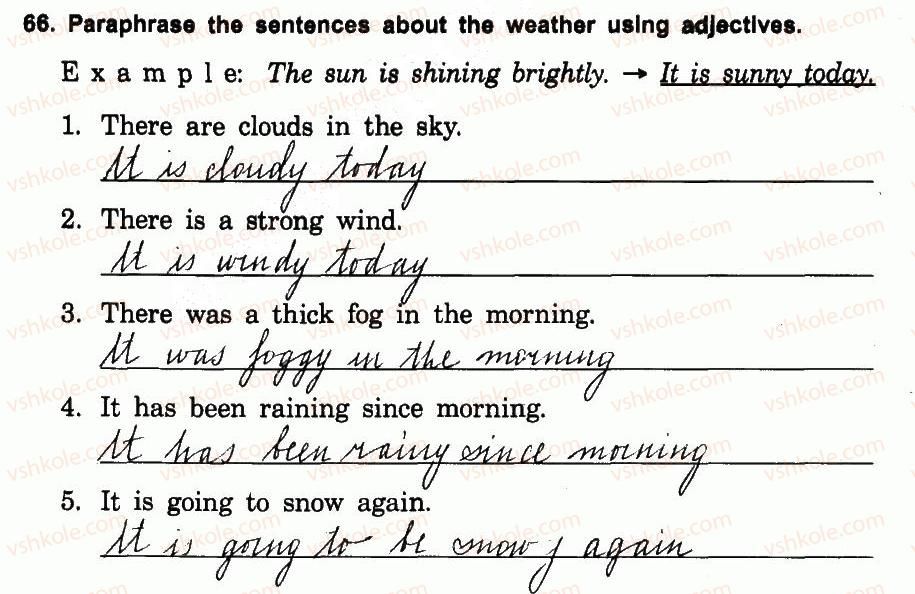 66. Paraphrase the sentences about the weather using adjectives.
E x a m p l e: The sun is shining brightly. → It is sunny today.
1. There are clouds in the sky.
It is cloudy today
2. There is a strong wind.
It is windy today
3. There was a thick fog in the morning.
It was foggy in the morning
4. It has been raining since morning.
It has been rainy since morning
5. It is going to snow again.
It is going to be snowy again